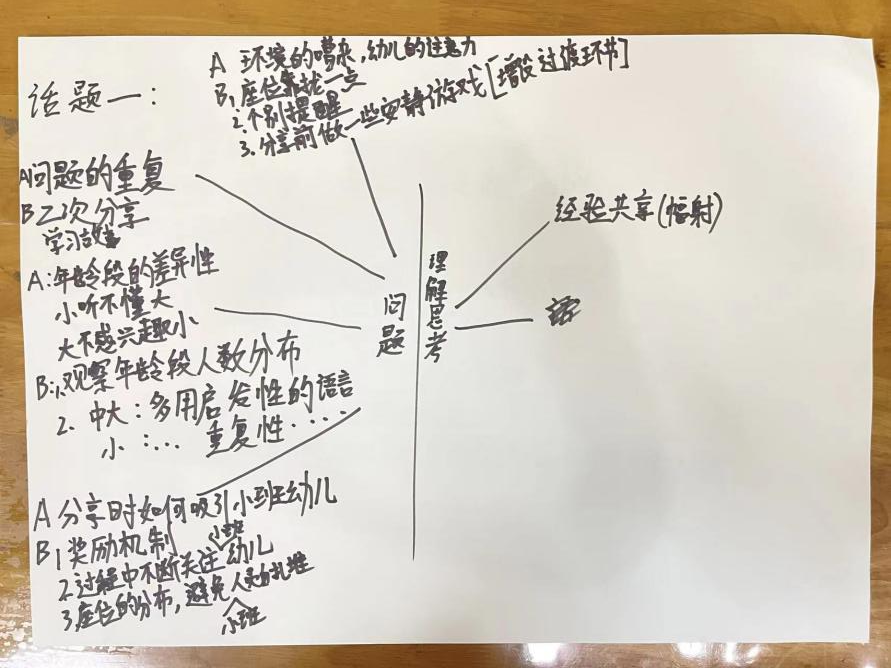 话题一：
A 环境的嘈杂，幼儿的注意力
B1 座位靠拢一点
2. 个别提醒
3. 分享前做一些安静游戏[增设过渡环节]
A问题的重复
B 二次分享
学习故事
A：年龄段的差异性
小听不懂大
大不感兴趣小
B：1.观察年龄段人数分布
2. 中大：多用启发性的语言
小：... 重复性....
A 分享时如何吸引小班幼儿
B 1 奖励机制
2.过程中不断关注小班幼儿
3.座位的分布，避免小班人员扎堆
问题
理解思考
经验共享(辐射)